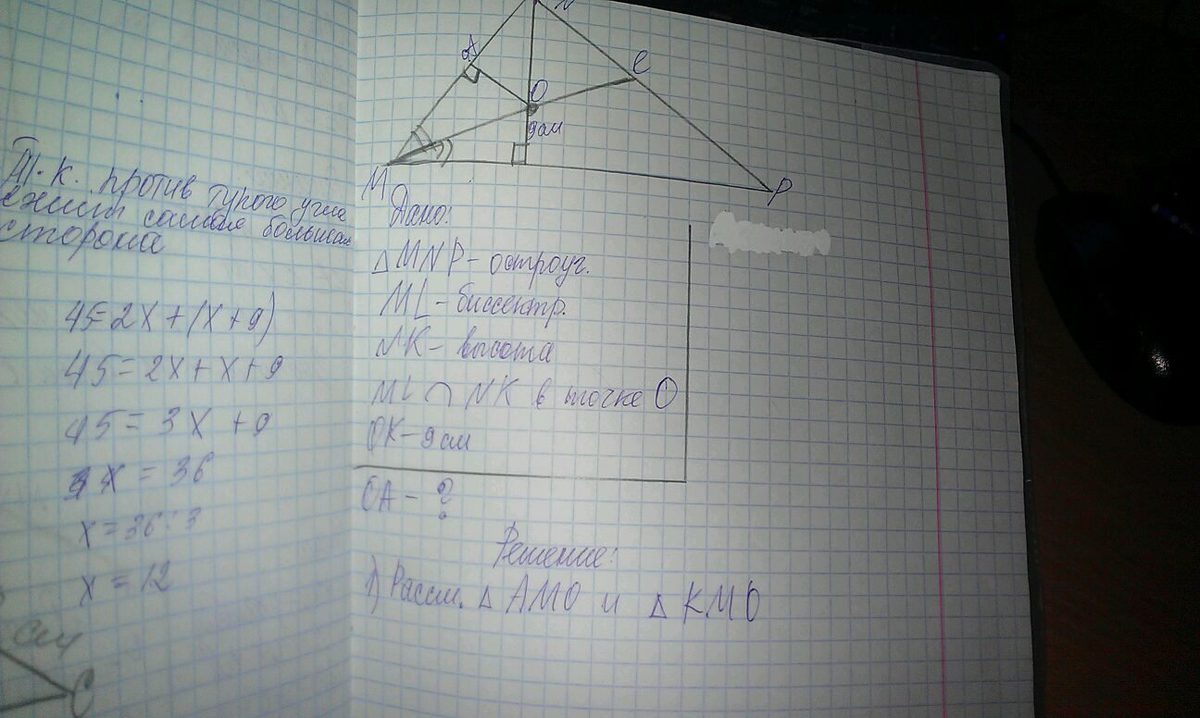 Т.к. против тупого угла
лежит самая большая
сторона
45=2x+(x+9)
45=2x+x+9
45=3x+9
3x=36
x=36:3
x=12
см
C
N
A
e
O
9см
M
P
Дано:
△MNP-остроуг.
ML-биссектр.
NK-высота
ML∩NK в точке O
OK-9см
OA-?
Решение:
1) Рассм. △ AMO и △ KMO